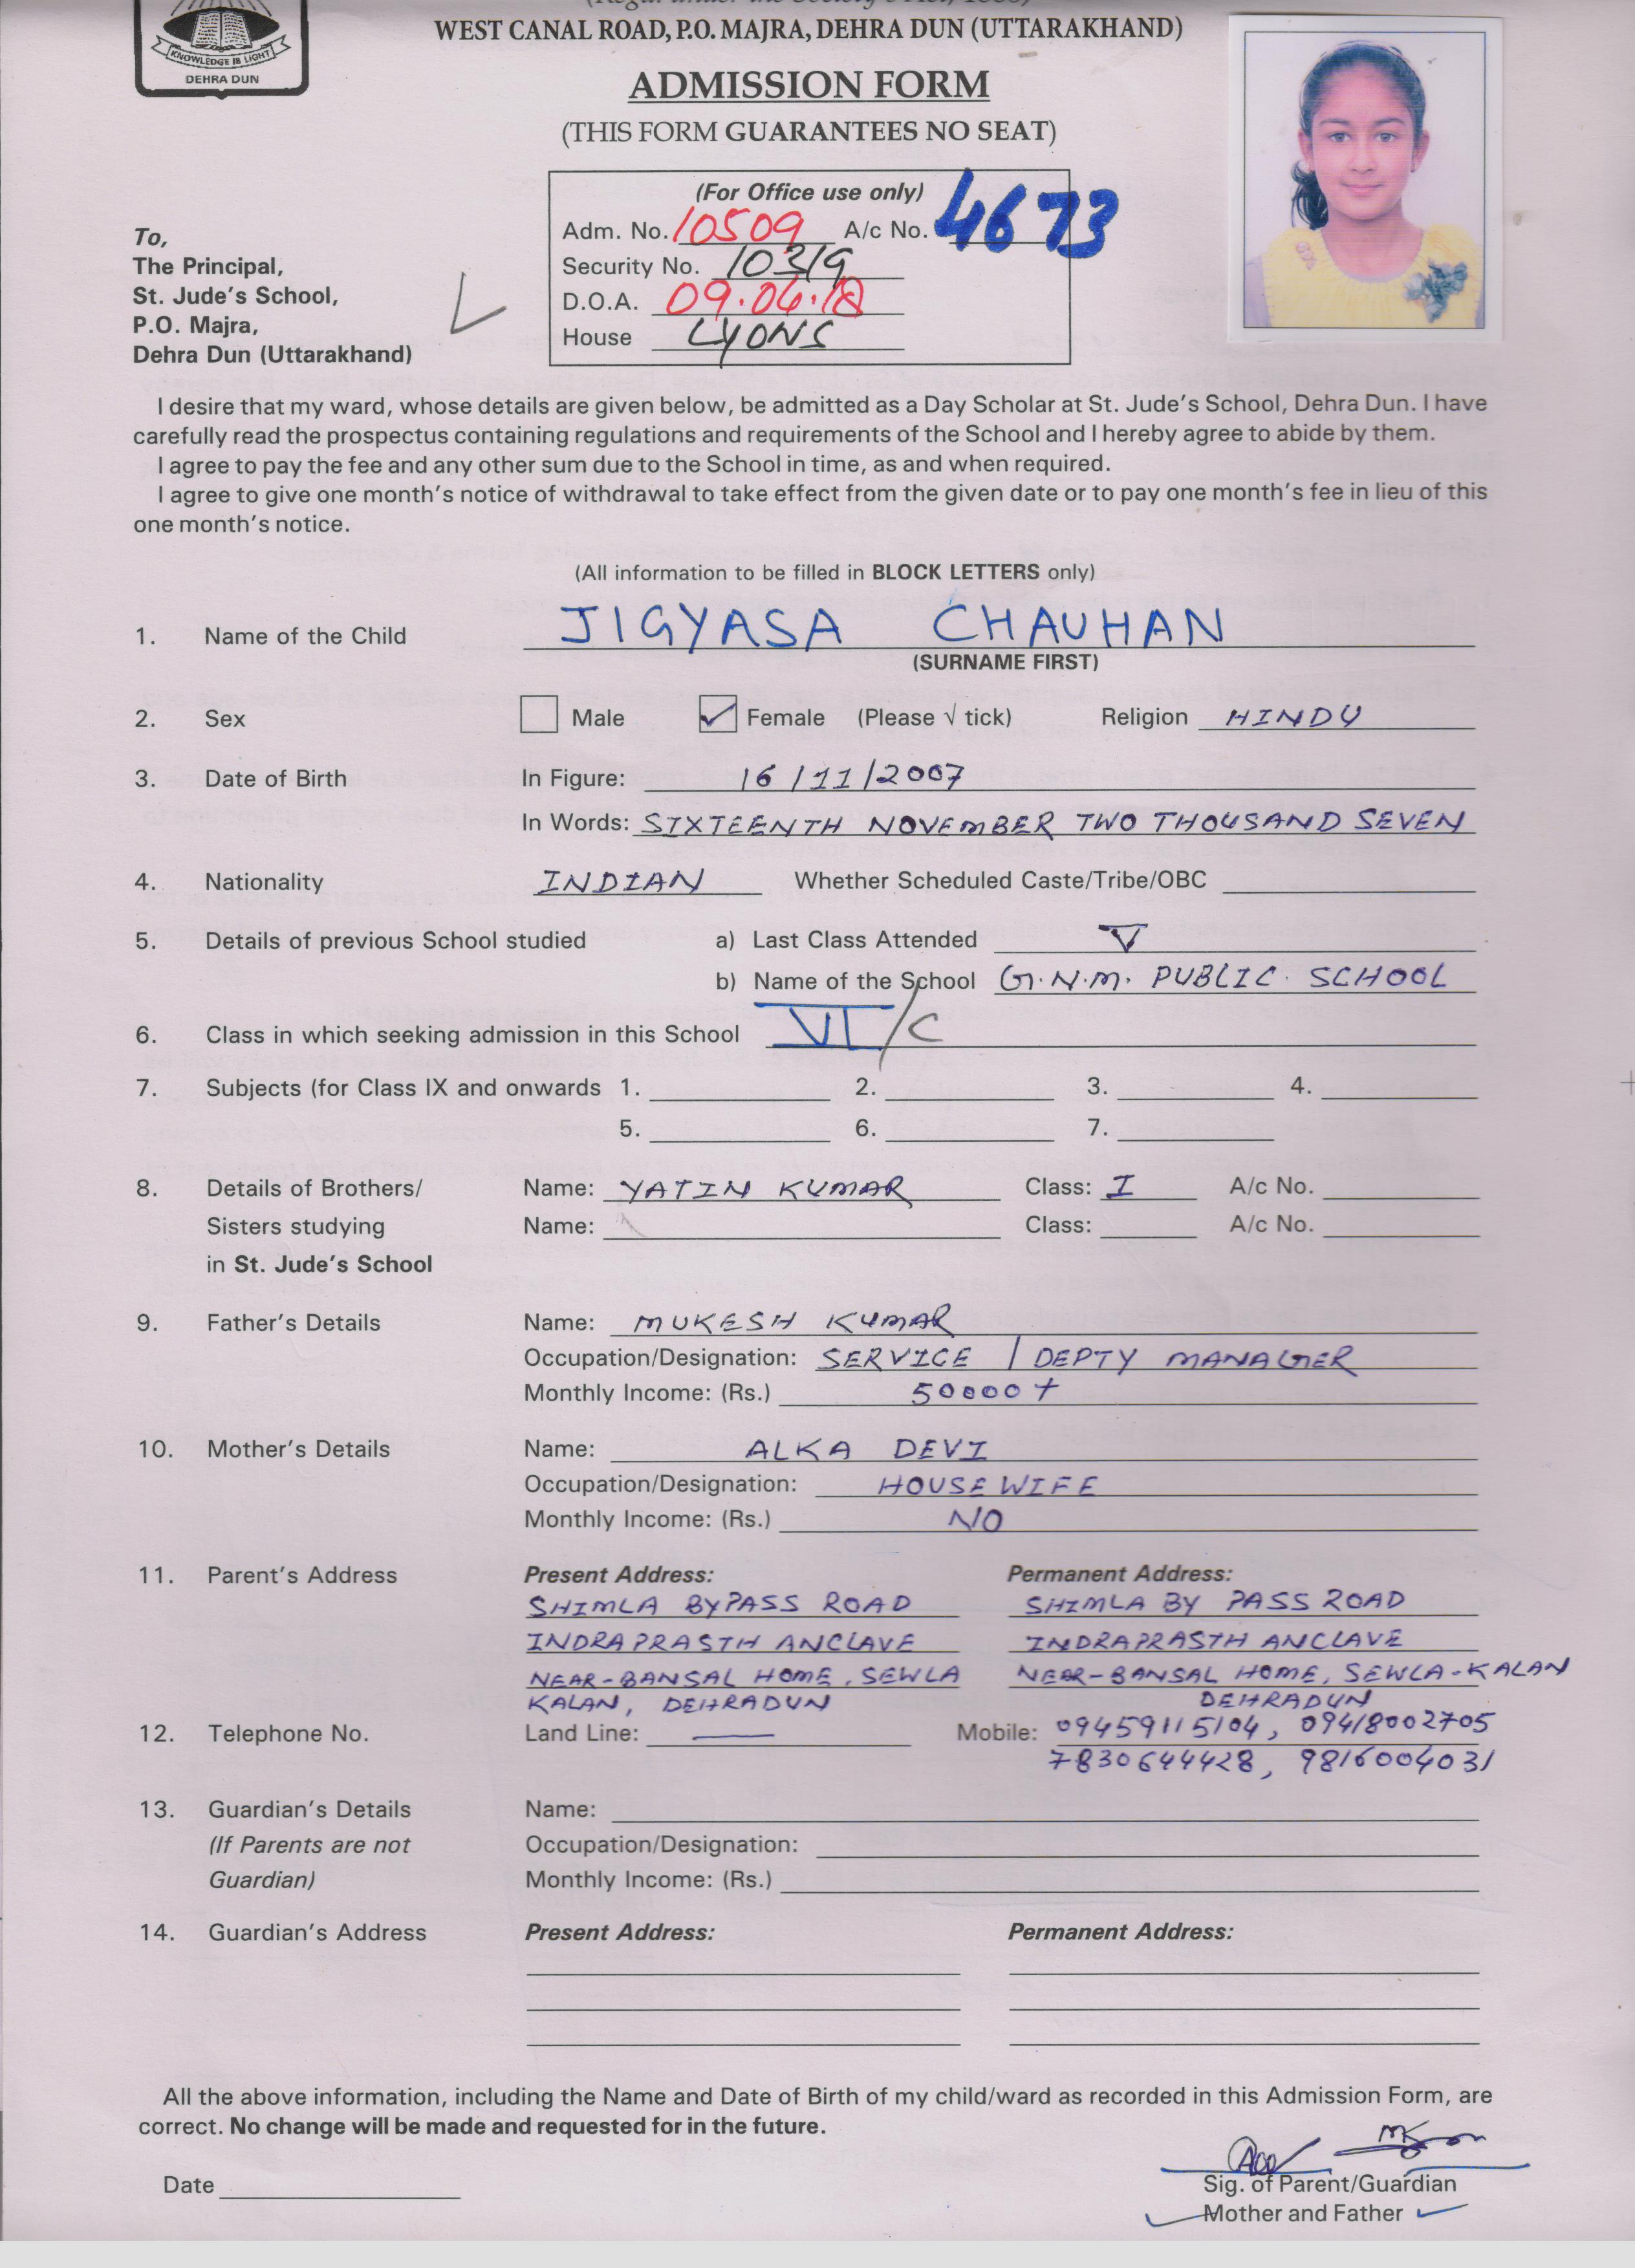 KNOWLEDGE IS LIGHT
DEHRA DUN
WEST CANAL ROAD, P.O. MAJRA, DEHRA DUN (UTTARAKHAND)
ADMISSION FORM
(THIS FORM GUARANTEES NO SEAT)
(For Office use only)
Adm. No. 10509 A/c No. 4673
Security No. 10319
D.O.A. 09.04.18
House LYONS
To,
The Principal,
St. Jude's School,
P.O. Majra,
Dehra Dun (Uttarakhand)
I desire that my ward, whose details are given below, be admitted as a Day Scholar at St. Jude's School, Dehra Dun. I have
carefully read the prospectus containing regulations and requirements of the School and I hereby agree to abide by them.
I agree to pay the fee and any other sum due to the School in time, as and when required.
I agree to give one month's notice of withdrawal to take effect from the given date or to pay one month's fee in lieu of this
one month's notice.
(All information to be filled in BLOCK LETTERS only)
1. Name of the Child JIGYASA CHAUHAN
(SURNAME FIRST)
2. Sex Male ✓ Female (Please √ tick) Religion HINDU
3. Date of Birth In Figure: 16/11/2007
In Words: SIXTEENTH NOVEMBER TWO THOUSAND SEVEN
4. Nationality INDIAN Whether Scheduled Caste/Tribe/OBC
5. Details of previous School studied a) Last Class Attended V
b) Name of the School G.N.M. PUBLIC SCHOOL
6. Class in which seeking admission in this School VI/C
7. Subjects (for Class IX and onwards 1. 2. 3. 4.
5. 6. 7.
8. Details of Brothers/ Name: YATIN KUMAR Class: I A/c No.
Sisters studying Name: Class: A/c No.
in St. Jude's School
9. Father's Details Name: MUKESH KUMAR
Occupation/Designation: SERVICE / DEPTY MANAGER
Monthly Income: (Rs.) 50000+
10. Mother's Details Name: ALKA DEVI
Occupation/Designation: HOUSE WIFE
Monthly Income: (Rs.) NO
11. Parent's Address Present Address: Permanent Address:
SHIMLA BYPASS ROAD SHIMLA BY PASS ROAD
INDRAPRASTH ANCLAVE INDRAPRASTH ANCLAVE
NEAR-BANSAL HOME, SEWLA NEAR-BANSAL HOME, SEWLA-KALAN
KALAN, DEHRADUN DEHRADUN
12. Telephone No. Land Line: — Mobile: 09459115104, 09418002705
7830644428, 9816004031
13. Guardian's Details Name:
(If Parents are not Occupation/Designation:
Guardian) Monthly Income: (Rs.)
14. Guardian's Address Present Address: Permanent Address:
All the above information, including the Name and Date of Birth of my child/ward as recorded in this Admission Form, are
correct. No change will be made and requested for in the future.
Date
Sig. of Parent/Guardian
Mother and Father